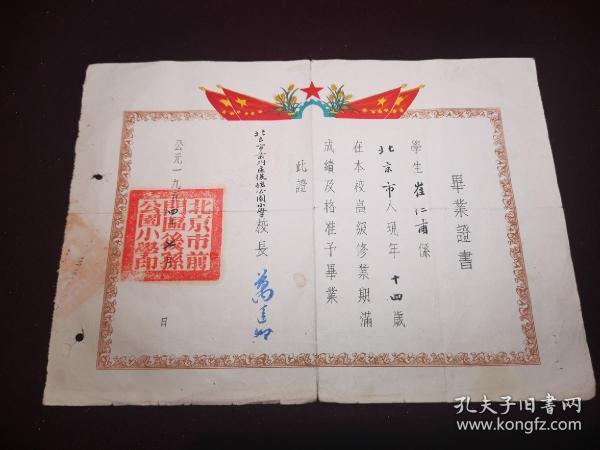 畢業證書
學生崔仁甫係
北京市人現年十四歲
在本校高級修業期滿
成績及格准予畢業
此證
校長
公元一九五四
日
北京市前
門區後孫
公園小學印
孔夫子旧书网
www.kongfz.com